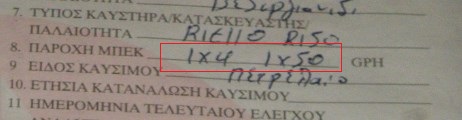 7. ΤΥΠΟΣ ΚΑΥΣΤΗΡΑ/ΚΑΤΑΣΚΕΥΑΣΤΗΣ/
ΠΑΛΑΙΟΤΗΤΑ RIELLO R150
8. ΠΑΡΟΧΗ ΜΠΕΚ 1x4 1x50 GPH
9 ΕΙΔΟΣ ΚΑΥΣΙΜΟΥ Πετρέλαιο
10. ΕΤΗΣΙΑ ΚΑΤΑΝΑΛΩΣΗ ΚΑΥΣΙΜΟΥ
11 ΗΜΕΡΟΜΗΝΙΑ ΤΕΛΕΥΤΑΙΟΥ ΕΛΕΓΧΟΥ